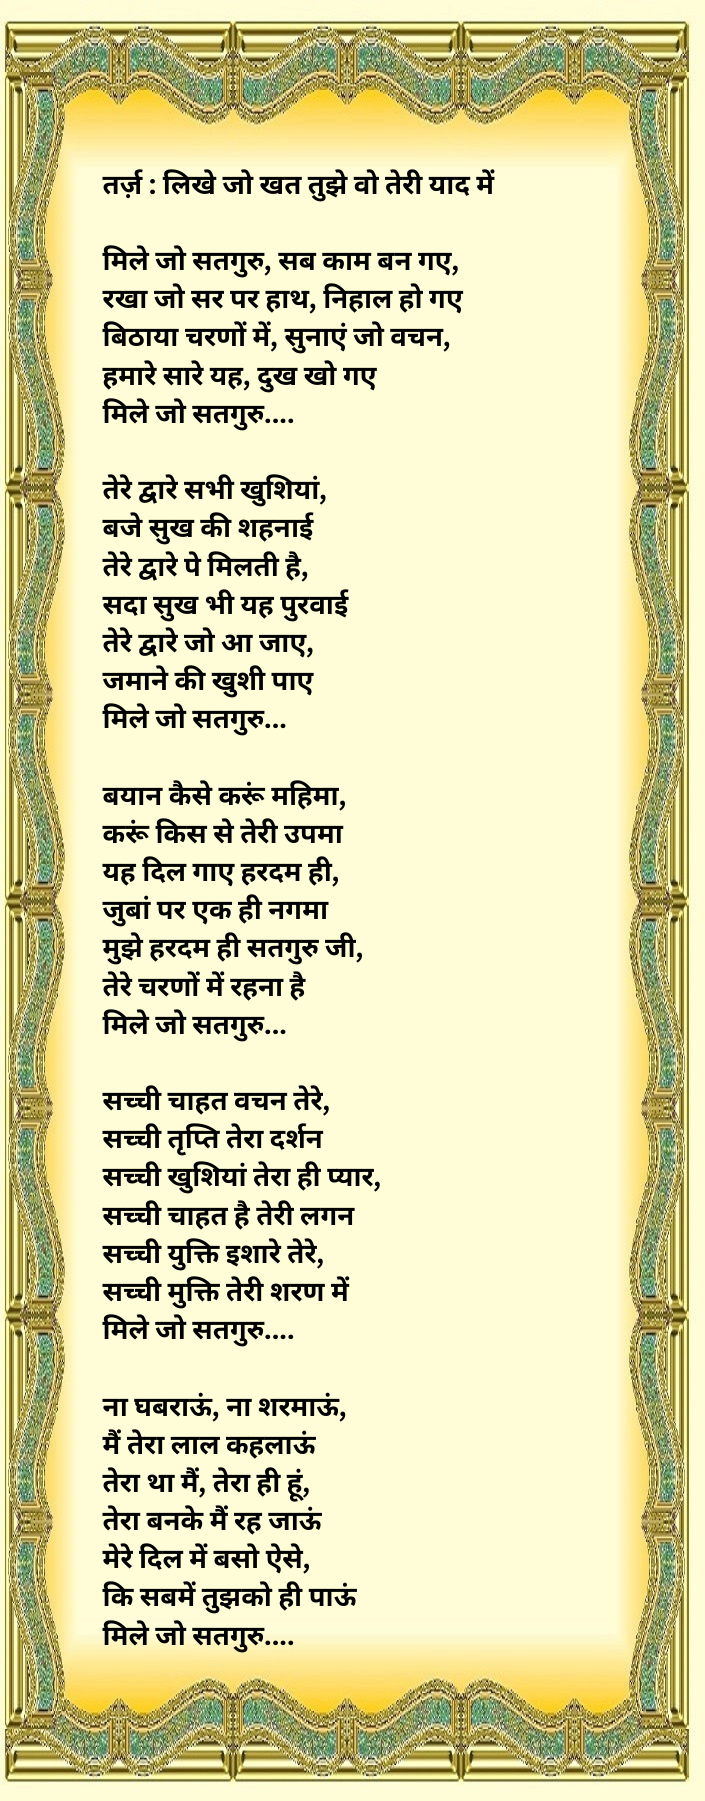 तर्ज़ : लिखे जो खत तुझे वो तेरी याद में
मिले जो सतगुरु, सब काम बन गए,
रखा जो सर पर हाथ, निहाल हो गए
बिठाया चरणों में, सुनाएं जो वचन,
हमारे सारे यह, दुख खो गए
मिले जो सतगुरु....
तेरे द्वारे सभी खुशियां,
बजे सुख की शहनाई
तेरे द्वारे पे मिलती है,
सदा सुख भी यह पुरवाई
तेरे द्वारे जो आ जाए,
जमाने की खुशी पाए
मिले जो सतगुरु...
बयान कैसे करूं महिमा,
करूं किस से तेरी उपमा
यह दिल गाए हरदम ही,
जुबां पर एक ही नगमा
मुझे हरदम ही सतगुरु जी,
तेरे चरणों में रहना है
मिले जो सतगुरु...
सच्ची चाहत वचन तेरे,
सच्ची तृप्ति तेरा दर्शन
सच्ची खुशियां तेरा ही प्यार,
सच्ची चाहत है तेरी लगन
सच्ची युक्ति इशारे तेरे,
सच्ची मुक्ति तेरी शरण में
मिले जो सतगुरु....
ना घबराऊं, ना शरमाऊं,
मैं तेरा लाल कहलाऊं
तेरा था मैं, तेरा ही हूं,
तेरा बनके मैं रह जाऊं
मेरे दिल में बसो ऐसे,
कि सबमें तुझको ही पाऊं
मिले जो सतगुरु....